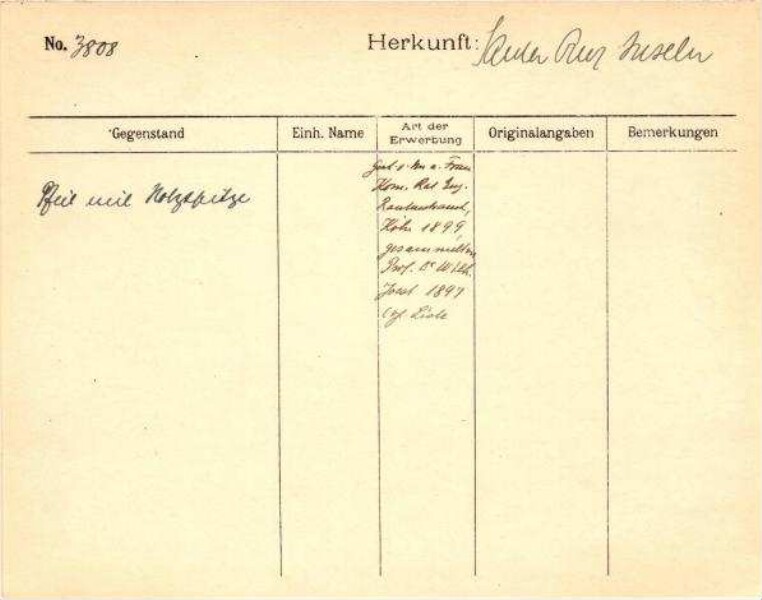 No. 3808
Herkunft: Santa Cruz Inseln
Gegenstand
Einh. Name
Art der Erwerbung
Originalangaben
Bemerkungen
Pfeil mit Holzspitze
Gesch. v. Frau
Kom. Rat Eug.
Rautenstrauch,
Köln 1899,
gesammelt von
Prof. Dr Wilh.
Joest 1897
cf Liste